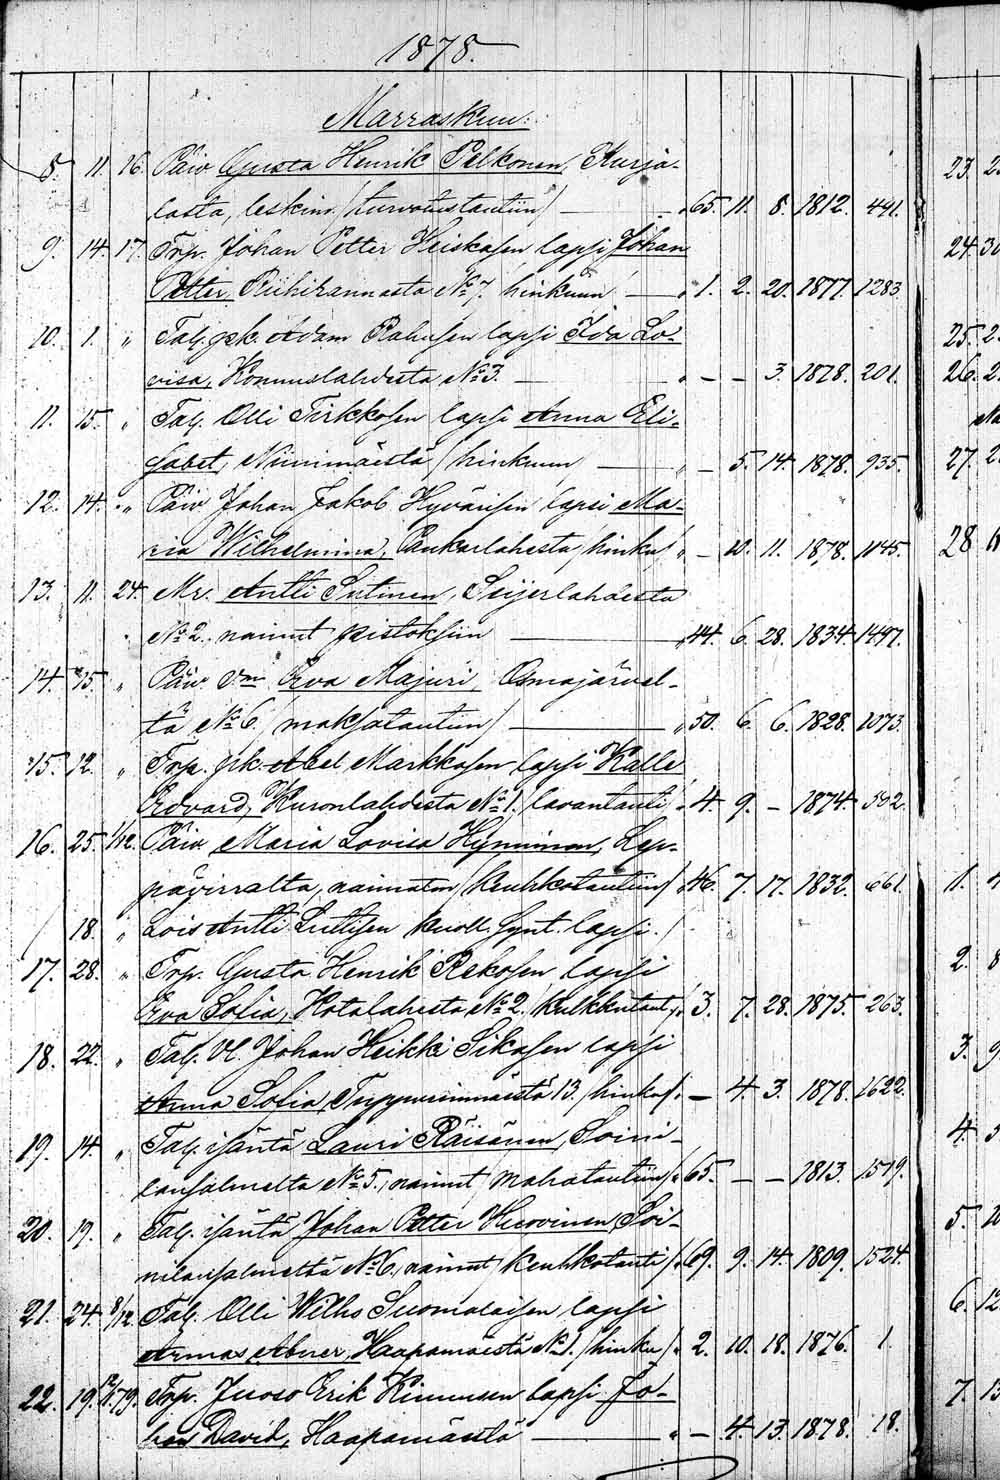 1878.
Marraskuu.
8. 11. 16. Päiv Gusta Henrik Pelkonen, Kurja-
lasta, leskim. /turvotustautiin/ — „ 65. 11. 8. 1812. 441.
9. 14. 17. Trp. Johan Petter Heiskasen lapsi Johan
Petter, Riihirannasta No 7. hinkuun — „ 1. 2. 20. 1877. 1283.
10. 1. „ Tal. psk. Adam Rahusen lapsi Ida Lo-
visa, Konnuslahdesta No 3. — „ – – 3. 1878. 201.
11. 15. „ Tal. Olli Tirkkosen lapsi Anna Eli-
sabet, Niinimäestä /hinkuun — „ – 5. 14. 1878. 935.
12. 14. „ Päiv Johan Jakob Hyvärisen lapsi Ma-
ria Wilhelmina, Paukarlahesta /hinku/ „ – 10. 11. 1878. 1145.
13. 11. 24. Mr. Antti Sutinen, Seijerlahdesta
No 2. nainut pistoksiin — „ 44. 6. 28. 1834. 1497.
14. 15. „ Päiv. Vm Eva Majuri, Osmajärvel-
tä No 6. /maksatautiin/ — „ 50. 6. 6. 1828. 1073.
15. 12. „ Trp. psk. Abel Markkasen lapsi Kalle
Edvard, Kuronlahdesta No 1. lavantauti „ 4. 9. – 1874. 592.
16. 25. 1/12. Päiv Maria Lovisa Hynninen, Lep-
pävirralta, naimaton /keuhkotautiin/ „ 46. 7. 17. 1832. 661.
18. „ Lois Antti Luttisen kuoll. synt. lapsi.
17. 28. „ Trp. Gusta Henrik Rekosen lapsi
Eva Sofia, Kotalahesta No 2. /kulkkutaut/ „ 3. 7. 28. 1875. 263.
18. 22. „ Tal. Vl. Johan Heikki Sikasen lapsi
Anna Sofia, 13. /hinku/ „ – 4. 3. 1878. 1622.
19. 14. „ Tal. isäntä Lauri Räisänen, Soini-
lansalmelta No 5., nainut /mahatautiin/ „ 65. – – 1813. 1519.
20. 19. „ Tal. isäntä Johan Petter Huovinen, Soi-
nilansalmelta No 6, nainut /keuhkotauti/ „ 69. 9. 14. 1809. 1524.
21. 24. 8/12. Tal. Olli Wilho Suomalaisen lapsi
Armas Abner, Haapamäestä No 1. /hinku/ „ 2. 10. 18. 1876. 1.
22. 19. 79. Trp. Erik Kinnusen lapsi Jo-
han David, Haapamäestä — „ – 4. 13. 1878. 18.
23.
24.
25.
26.
27.
28
1.
2.
3.
4.
5.
6.
7.